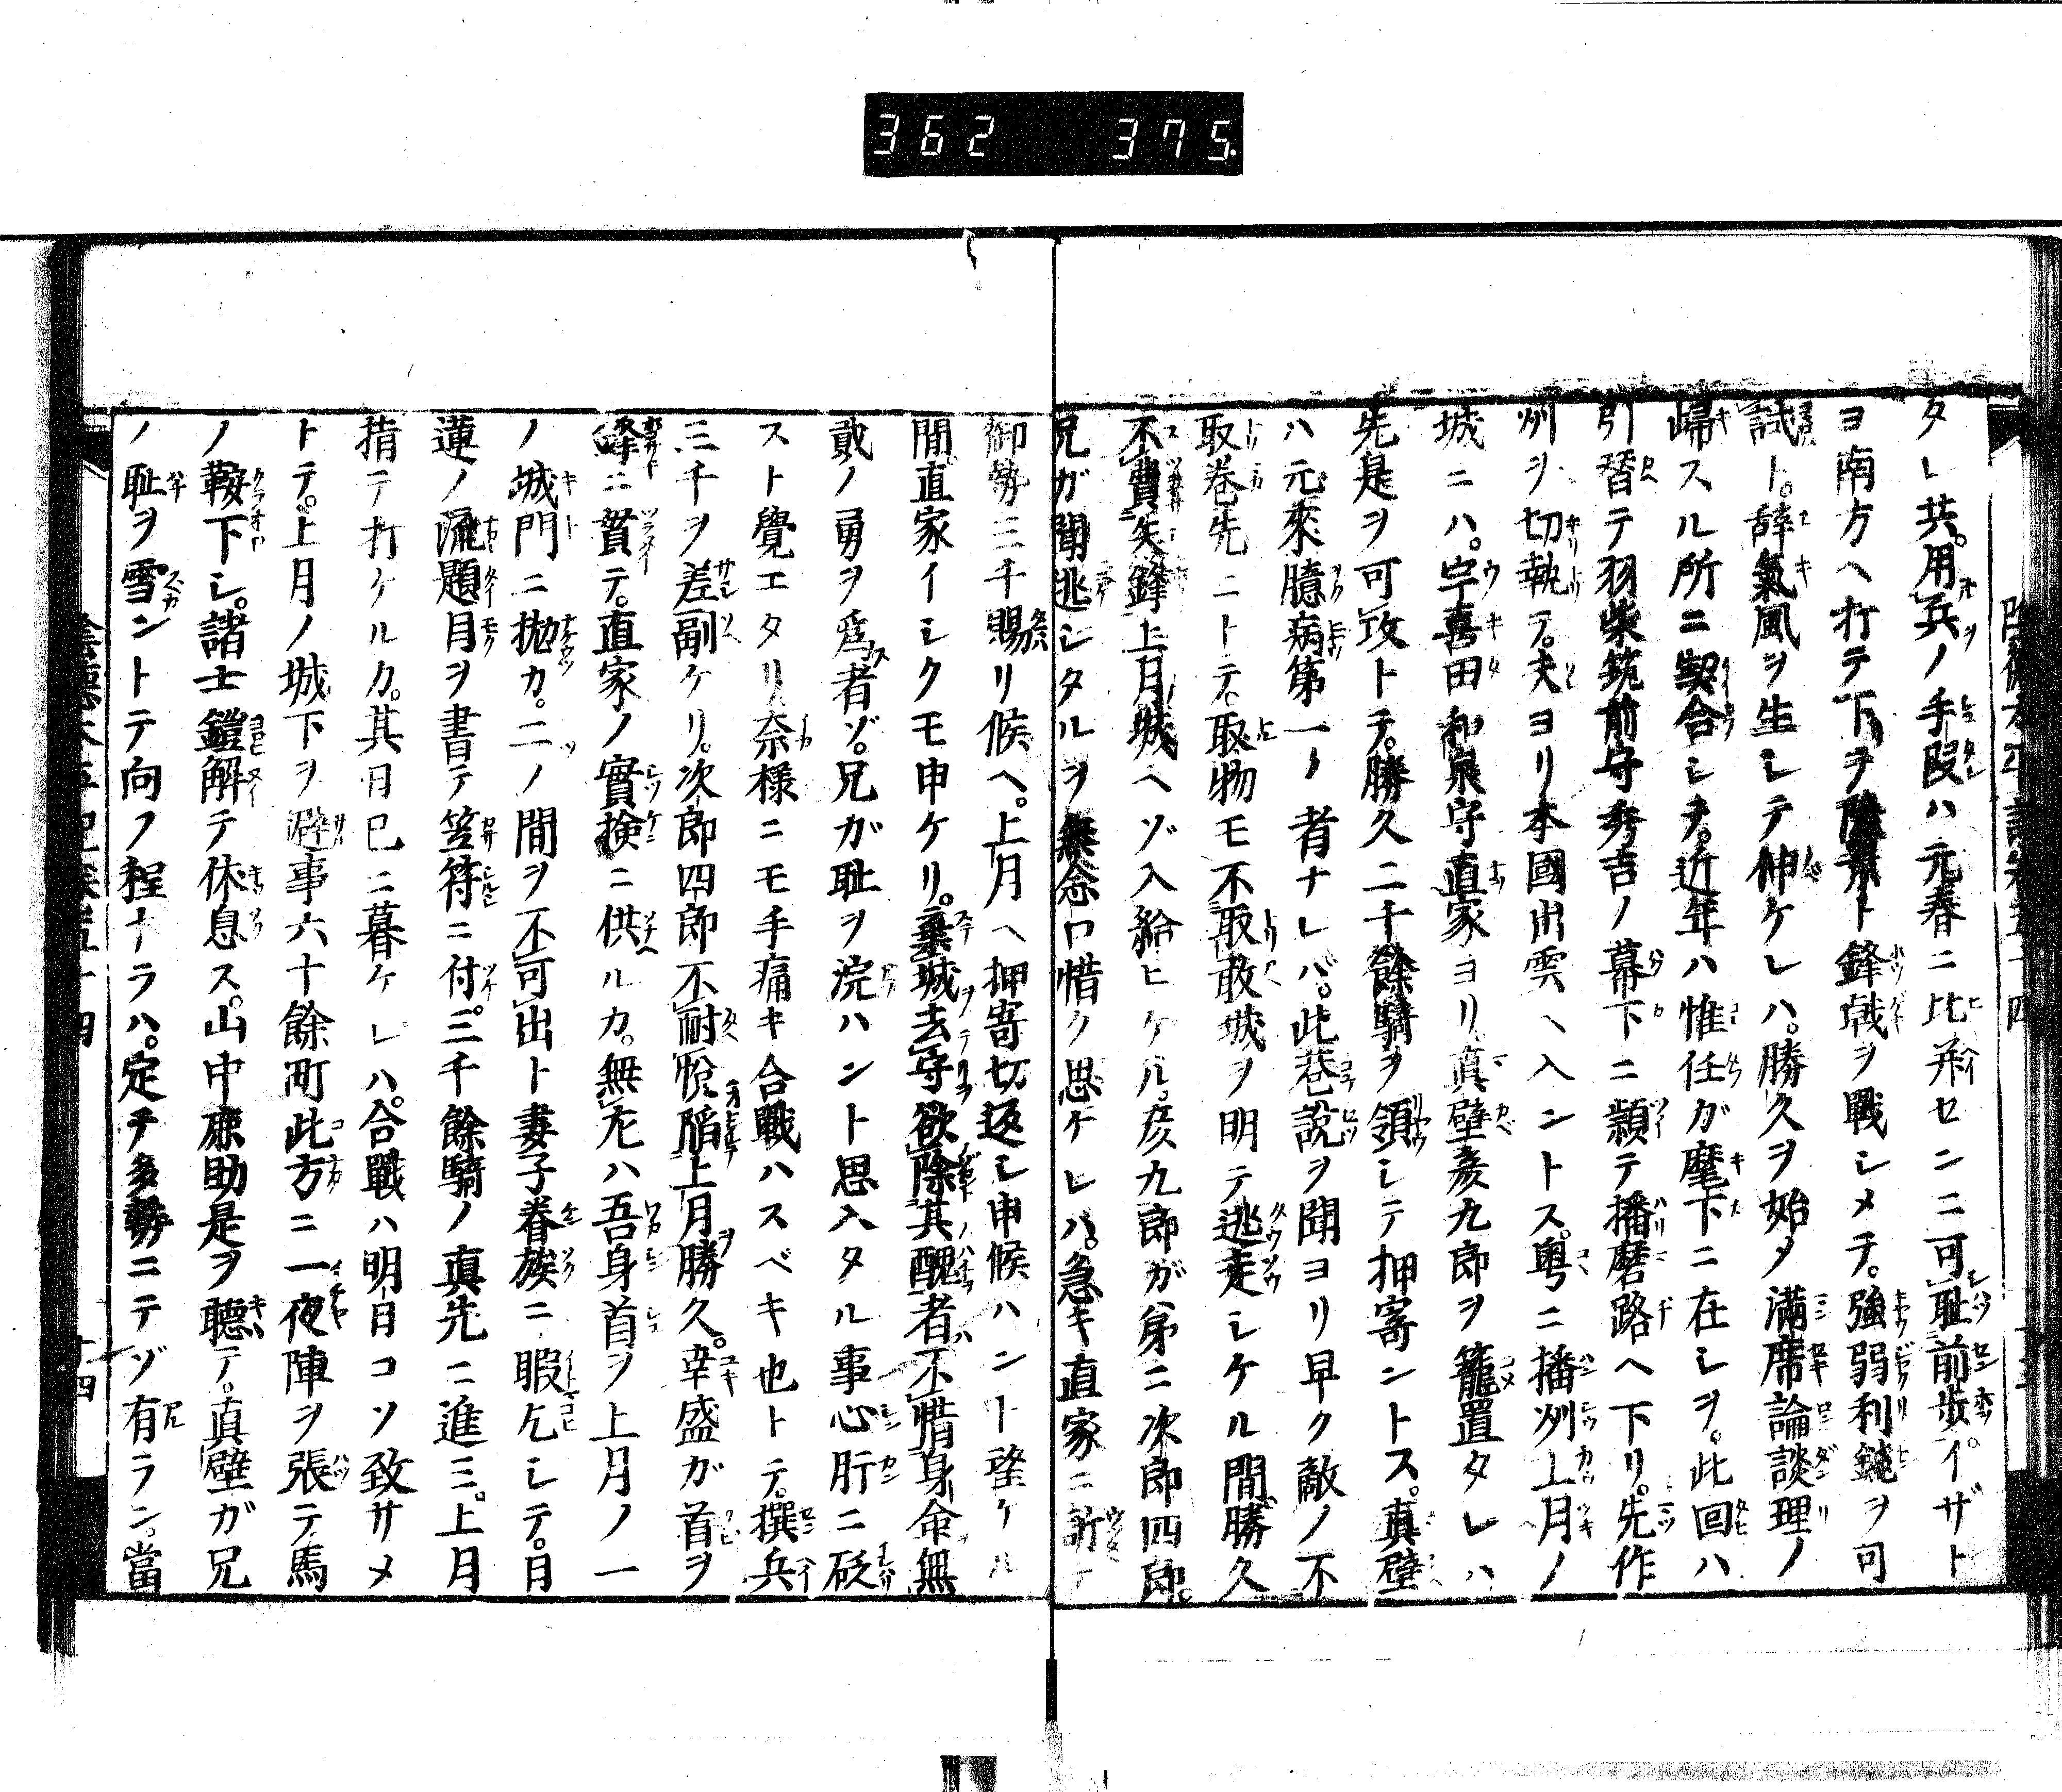 362 375
タレ共。用兵ノ手段ハ元春ニ比并センニ可恥前歩イザト
ヨ南方ヘ打テ下ヲ隆景ト鋒戟ヲ戰シメテ。強弱利鈍ヲ可
試ト。辞氣風ヲ生シテ伸ケレハ。勝久ヲ始メ満席論談理ノ
帰スル所ニ契合シテ。近年ハ惟任ガ麾下ニ在シヲ。此回ハ
引替テ羽柴筑前守秀吉ノ幕下ニ頼テ播磨路ヘ下リ。先作
州ヲ切執テ。夫ヨリ本國出雲ヘ入ントス。粤ニ播州上月ノ
城ニハ。宇喜田和泉守直家ヨリ真壁彦九郎ヲ籠置タレハ
先是ヲ可攻トテ。勝久二千餘騎ヲ領シテ押寄ントス。真壁
ハ元來臆病第一ノ者ナレバ。此巷説ヲ聞ヨリ早ク敵ノ不
取巻先ニトテ。取物モ不取敢城ヲ明テ逃走シケル間勝久
不費矢鋒上月城ヘゾ入給ヒケル。彦九郎ガ弟ニ次郎四郎
兄ガ聞逃シタルヲ無念口惜ク思ケレハ。急キ直家ニ訴ケ
御勢三千賜リ候ヘ。上月ヘ押寄切返シ申候ハント望ケル
間直家イシクモ申ケリ。棄城去守欲除其醜者不惜身命無
貳ノ勇ヲ為者ゾ。兄ガ恥ヲ浣ハント思入タル事心肝ニ砭
スト覺エタリ奈様ニモ手痛キ合戰ハスベキ也トテ。撰兵
三千ヲ差副ケリ。次郎四郎不耐悦陥上月勝久。幸盛ガ首ヲ
鋒ニ貫テ。直家ノ實検ニ供ルカ。無左ハ吾身首ヲ上月ノ一
ノ城門ニ抛カ。二ノ間ヲ不可出ト妻子眷族ニ暇乞シテ。日
蓮ノ流題目ヲ書テ笠符ニ付。三千餘騎ノ真先ニ進ミ。上月
指テ打ケルカ。其日已ニ暮ケレハ。合戰ハ明日コソ致サメ
トテ。上月ノ城下ヲ避事六十餘町此方ニ一夜陣ヲ張テ馬
ノ鞍下シ。諸士鎧解テ休息ス。山中鹿助是ヲ聴テ。真壁ガ兄
ノ恥ヲ雪ントテ向フ程ナラハ。定テ多勢ニテゾ有ラン。當